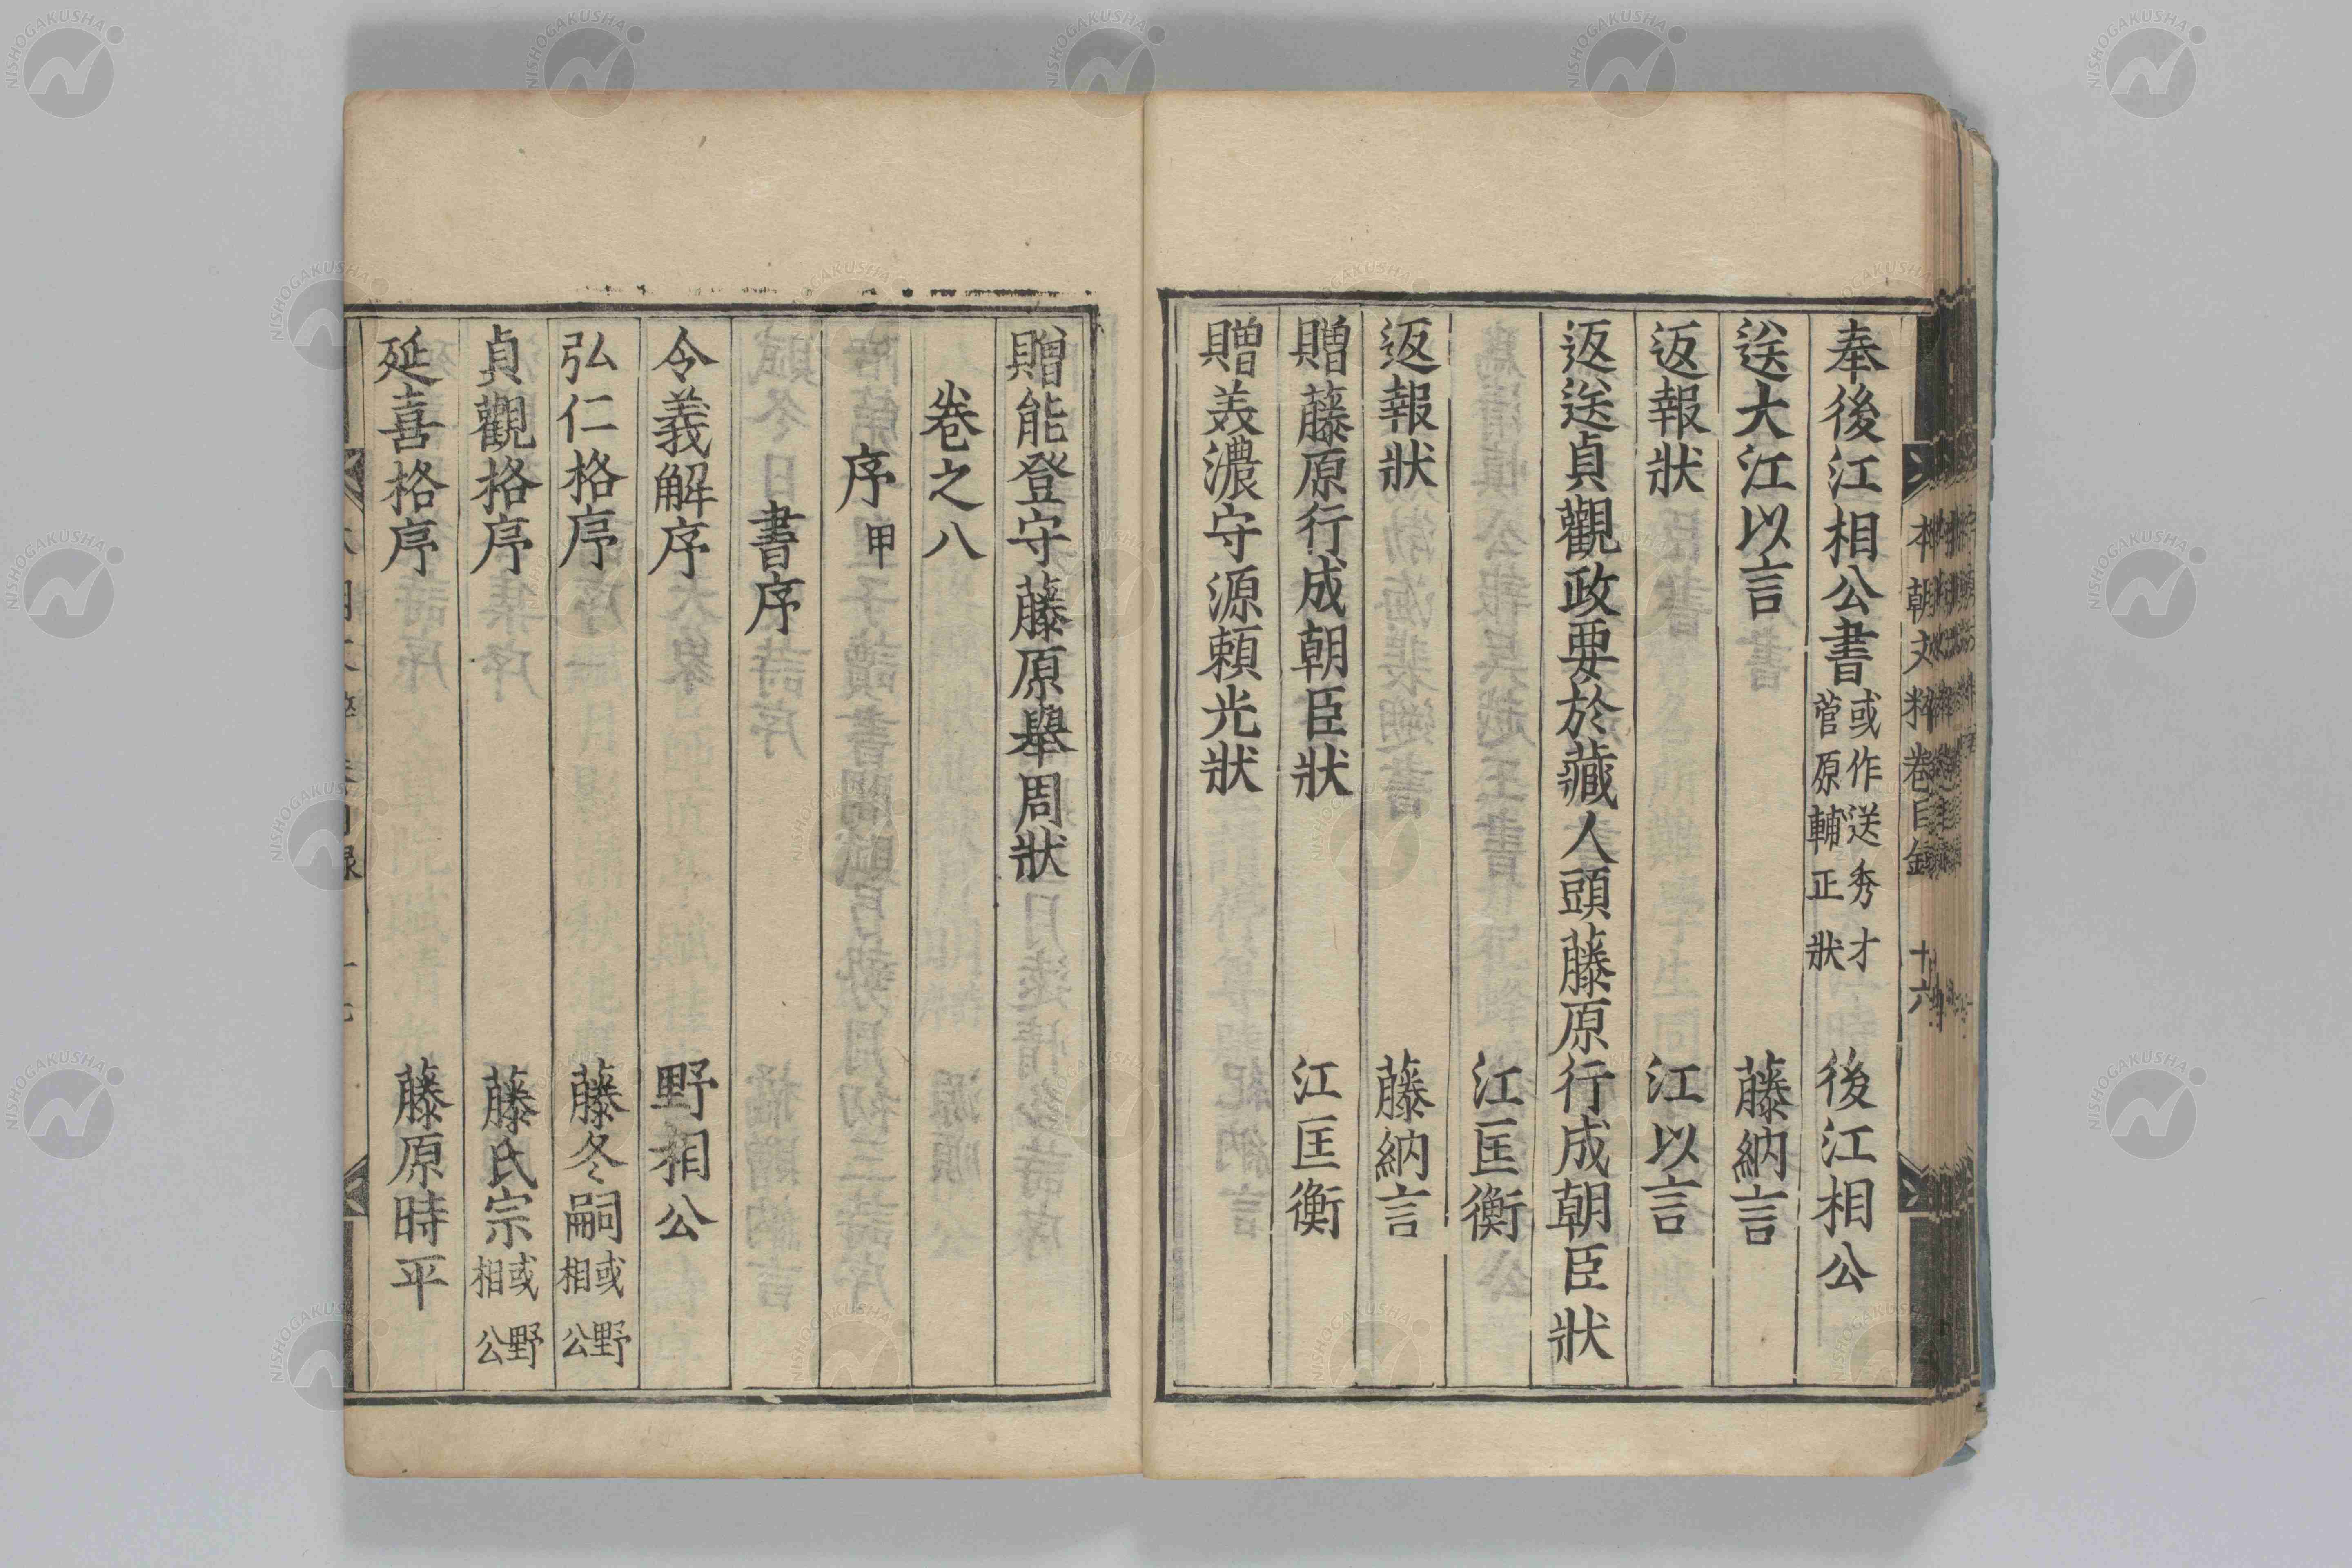 奉後江相公書 或作送秀才菅原輔正狀 後江相公
送大江以言 藤納言
返報狀 江以言
返送貞觀政要於藏人頭藤原行成朝臣狀
江匡衡
返報狀 藤納言
贈藤原行成朝臣狀 江匡衡
贈美濃守源賴光狀
本朝文粹卷目錄 十六
贈能登守藤原舉周狀
卷之八
序 甲
書序
令義解序 野相公
弘仁格序 藤冬嗣 或野相公
貞觀格序 藤氏宗 或野相公
延喜格序 藤原時平
NISHOGAKUSHA